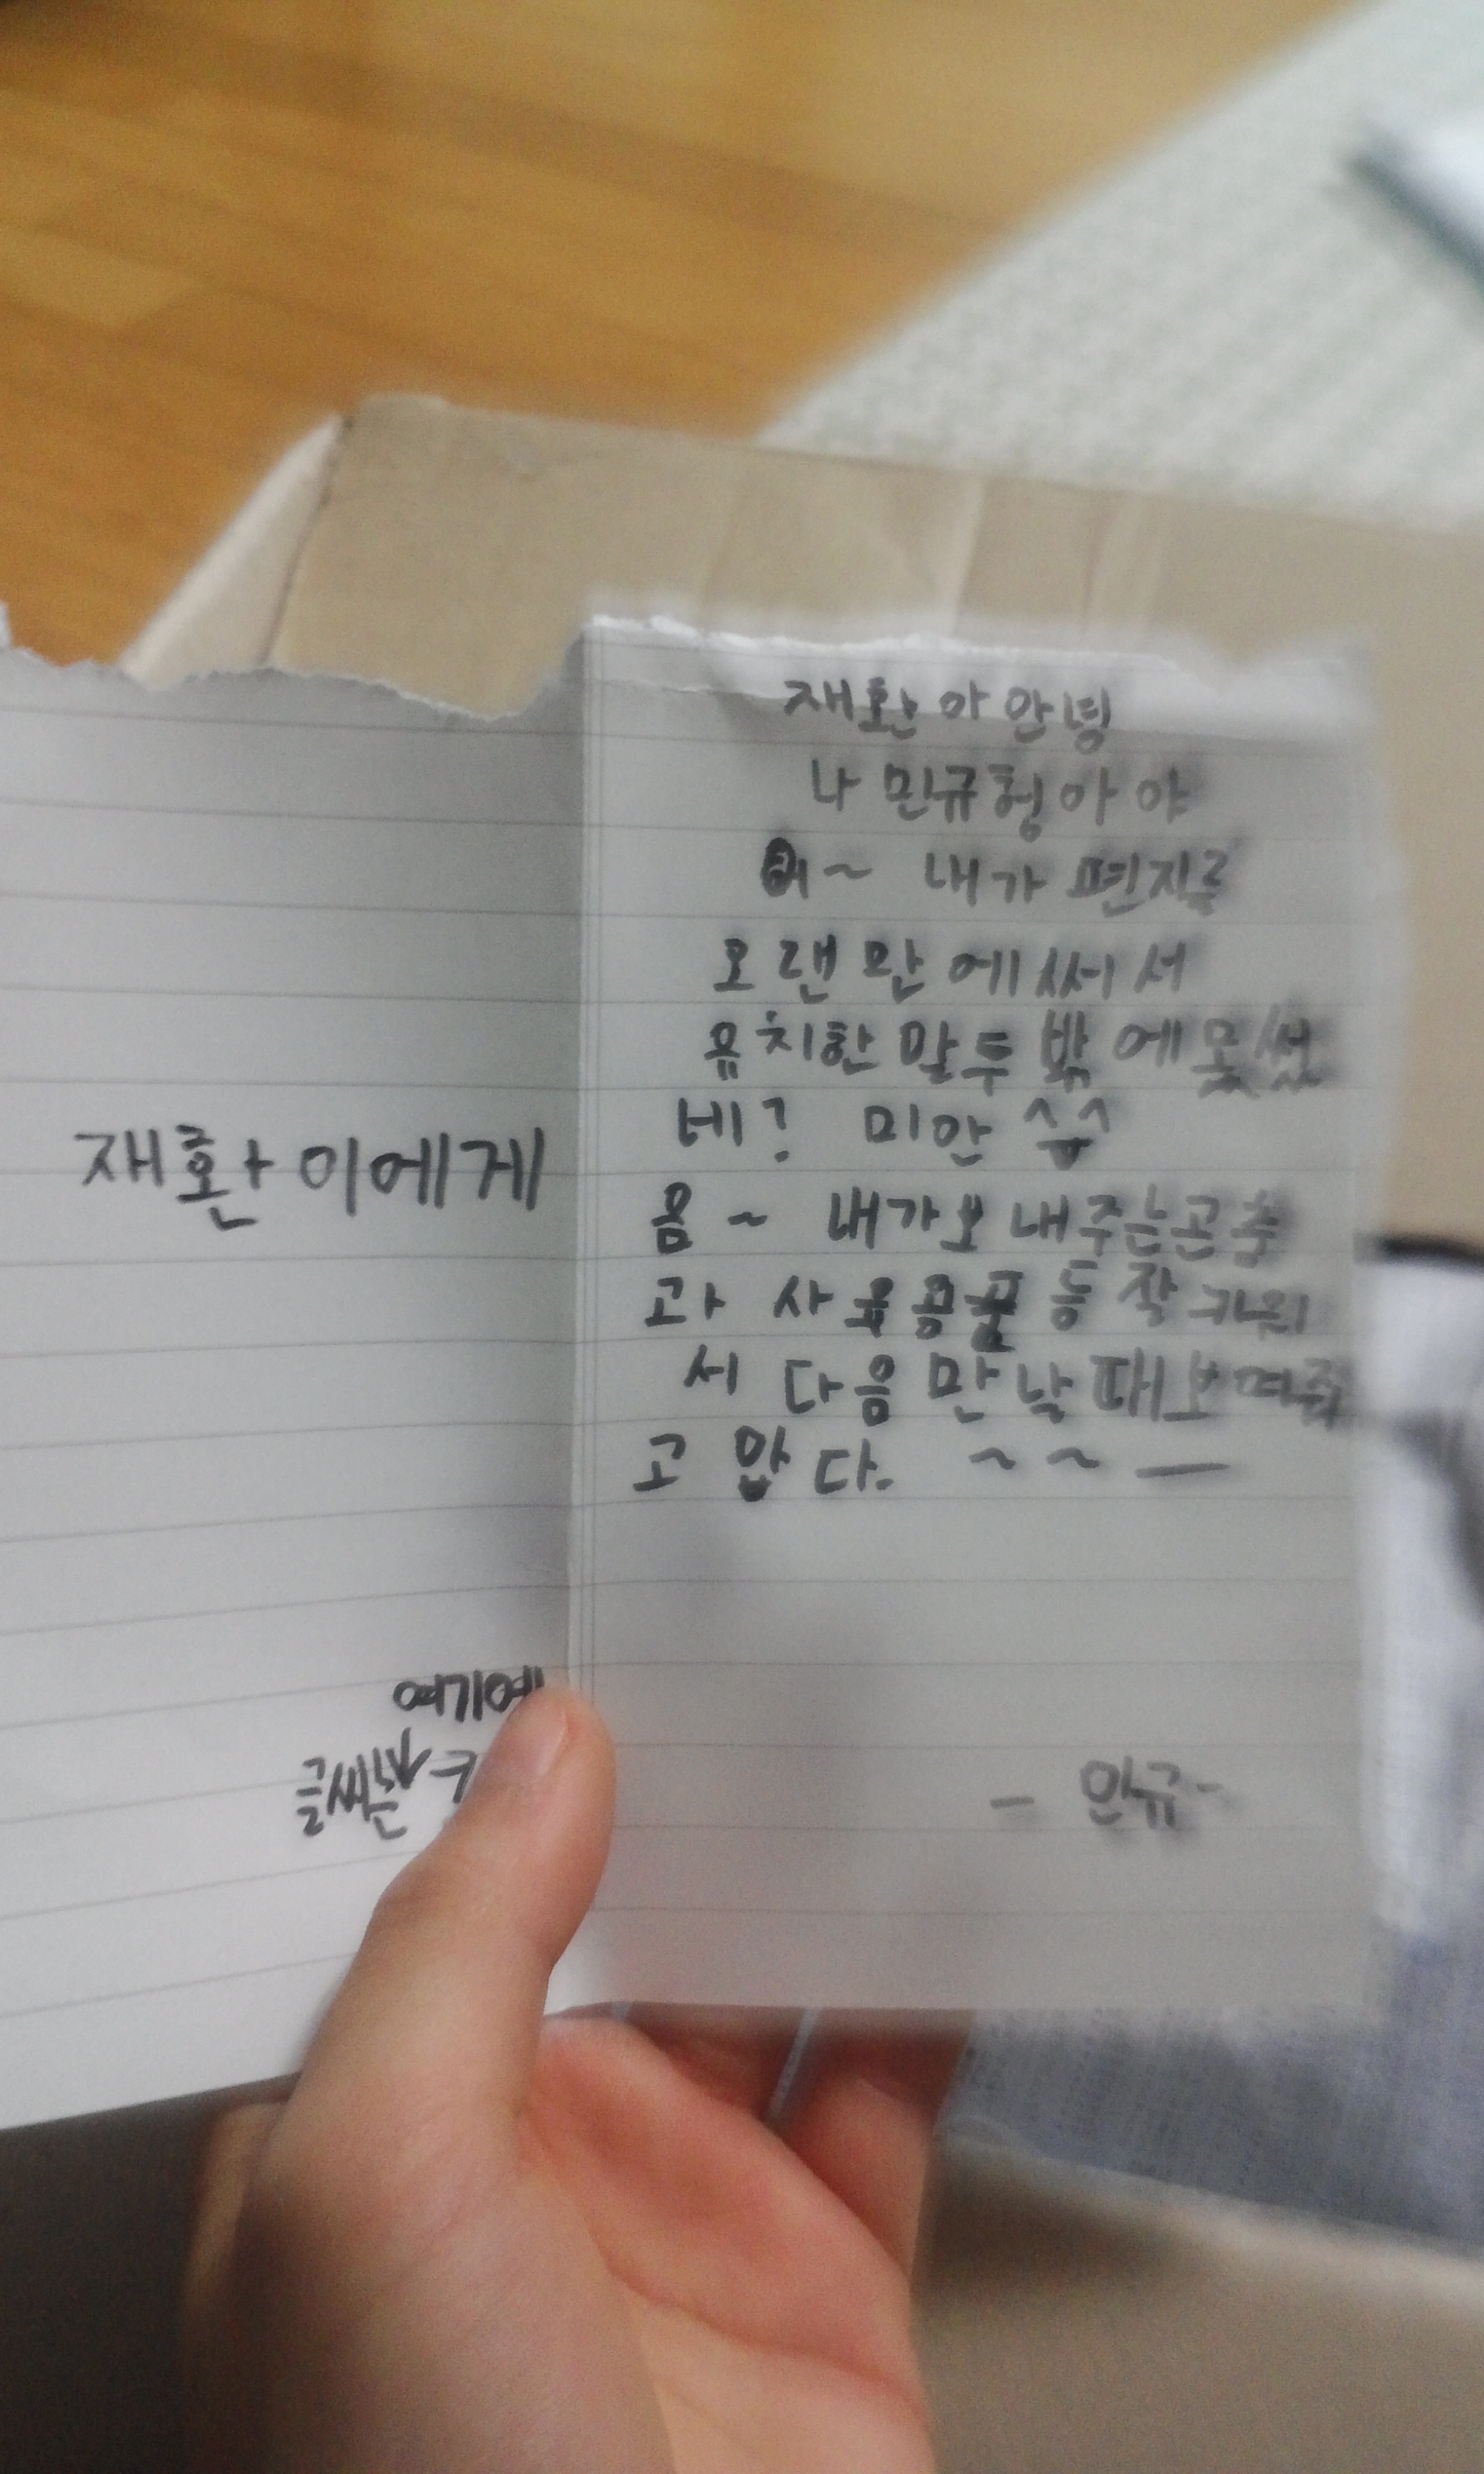 재환이에게
여기에
글씨는
재환아 안녕
나 민규형아야
어~ 내가 편지를
오랜만에써서
유치한 말투밖에못썼
네? 미안 ^^
음~ 내가보내주는곤충
과 사육용품 등 잘키워
서 다음만날때보여줘
고맙다. ~~ㅡ
- 민규-